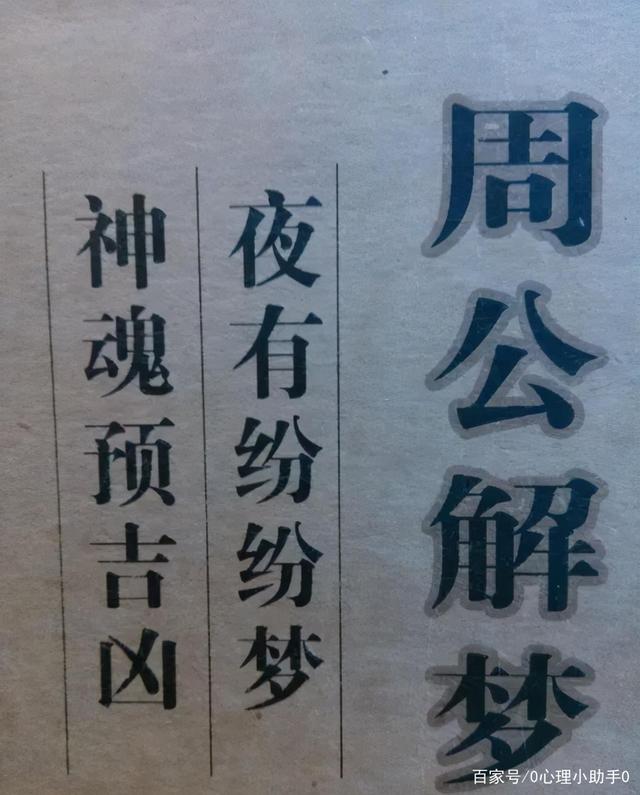 周公解梦
夜有纷纷梦
神魂预吉凶
百家号/0心理小助手0